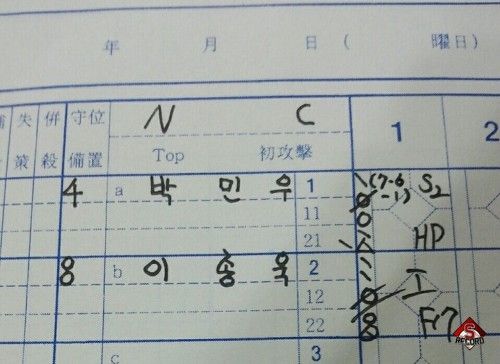 年 月 日 ( 曜日)
失 併 守位 N C 1 2
策 殺 備置 Top 初攻擊
4 a 박 민 우 1 (7-6 S2
11 -1)
21 HP
8 b 이 종 욱 2
12 I
22 8 F17
c 3
S
RECORD